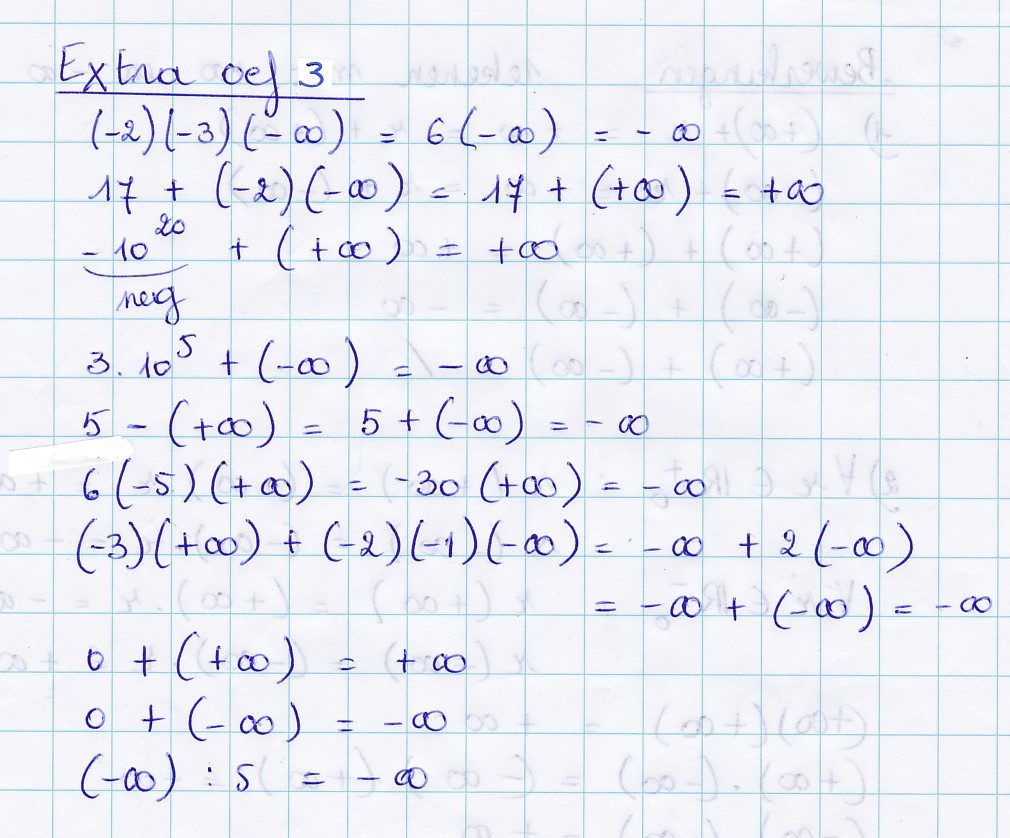 Extra oef 3
(-2)(-3)(-∞) = 6(-∞) = -∞
17 + (-2)(-∞) = 17 + (+∞) = +∞
-10²⁰ + (+∞) = +∞
neg
3.10⁵ + (-∞) = -∞
5 - (+∞) = 5 + (-∞) = -∞
6(-5)(+∞) = -30(+∞) = -∞
(-3)(+∞) + (-2)(-1)(-∞) = -∞ + 2(-∞)
= -∞ + (-∞) = -∞
0 + (+∞) = +∞
0 + (-∞) = -∞
(-∞) : 5 = -∞